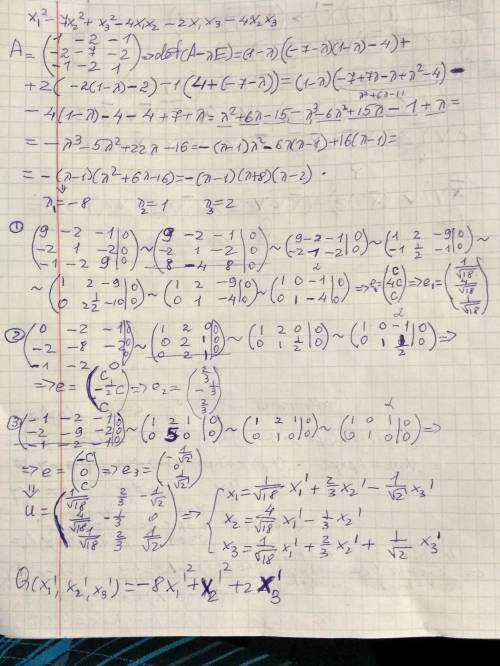 x₁² - 7x₂² + x₃² - 4x₁x₂ - 2x₁x₃ - 4x₂x₃
A = (1 -2 -1; -2 -7 -2; -1 -2 1) => det(A-λE) = (1-λ)((-7-λ)(1-λ)-4) +
+2(-2(1-λ)-2) -1(4+(-7-λ)) = (1-λ)(-7+7λ-λ+λ²-4) -
λ²+6λ-11
-4(1-λ)-4-4+7+λ = λ²+6λ-15-λ³-6λ²+15λ-1+λ =
= -λ³-5λ²+22λ-16 = -(λ-1)λ²-6λ(λ-1)+16(λ-1) =
= -(λ-1)(λ²+6λ-16) = -(λ-1)(λ+8)(λ-2)
λ₁=-8 λ₂=1 λ₃=2
① (9 -2 -1|0; -2 1 -2|0; -1 -2 9|0) ~ (9 -2 -1|0; -2 1 -2|0; 8 -4 8|0) ~ (9 -2 -1|0; -2 1 -2|0) ~ (1 2 -9|0; -1 ½ -1|0) ~
~ (1 2 -9|0; 0 2½ -10|0) ~ (1 2 -9|0; 0 1 -4|0) ~ (1 0 -1|0; 0 1 -4|0) => e₁=(C; 4C; C) => e₁=(1/√18; 4/√18; 1/√18)
② (0 -2 -1|0; -2 -8 -2|0; -1 -2 0|0) ~ (1 2 0|0; 0 2 1|0) ~ (1 2 0|0; 0 1 ½|0) ~ (1 0 -1|0; 0 1 ½|0) =>
=> e = (C; -½C; C) => e₂ = (2/3; -1/3; 2/3)
③ (-1 -2 -1|0; -2 -9 -2|0) ~ (1 2 1|0; 0 5 0|0) ~ (1 2 1|0; 0 1 0|0) ~ (1 0 1|0; 0 1 0|0) =>
=> e = (-C; 0; C) => e₃ = (-1/√2; 0; 1/√2)
U = (1/√18 2/3 -1/√2; 4/√18 -1/3 0; 1/√18 2/3 1/√2) => { x₁ = 1/√18 x₁' + 2/3 x₂' - 1/√2 x₃'
x₂ = 4/√18 x₁' - 1/3 x₂'
x₃ = 1/√18 x₁' + 2/3 x₂' + 1/√2 x₃'
Q(x₁', x₂', x₃') = -8x₁'² + x₂'² + 2x₃'